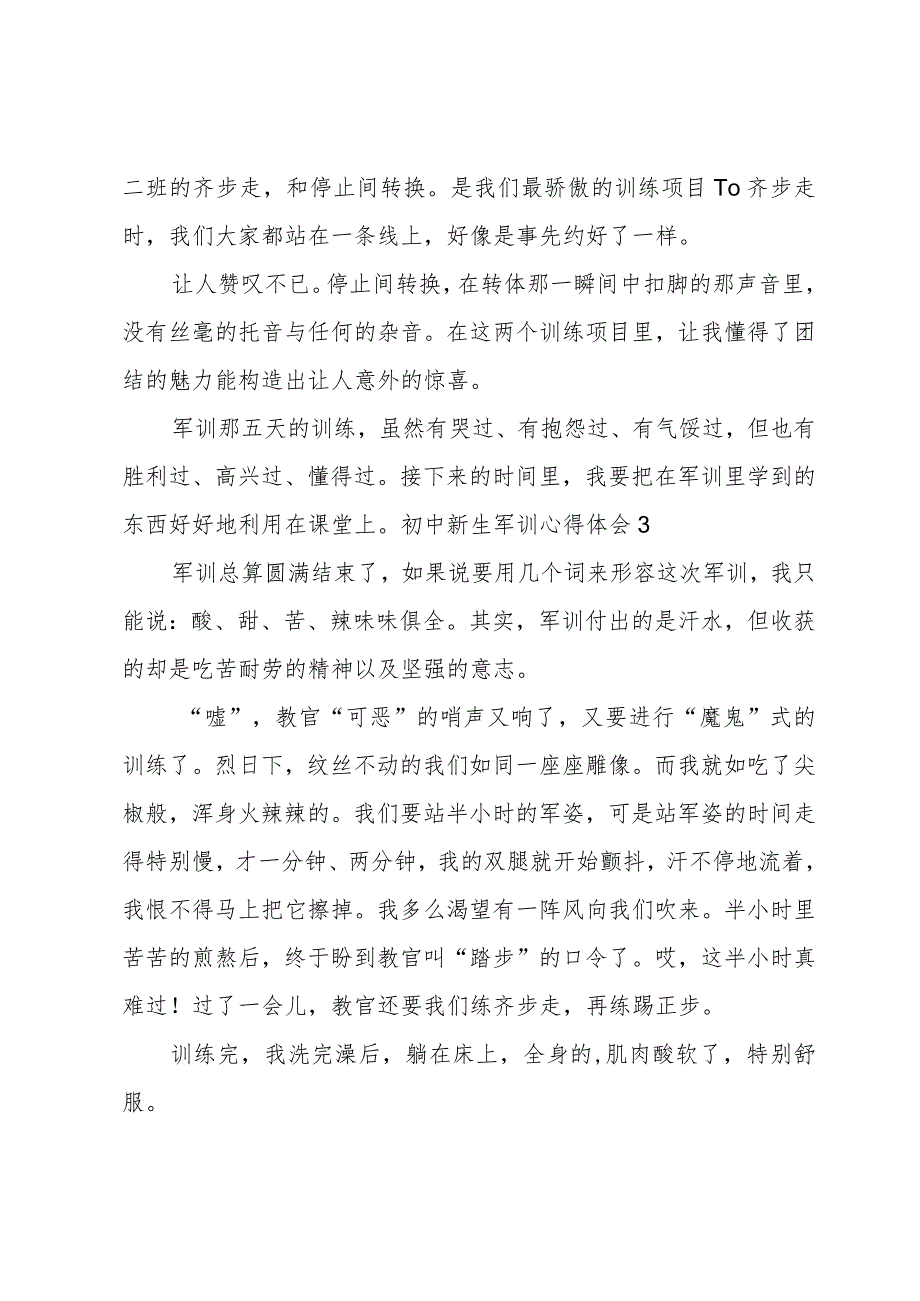 二班的齐步走，和停止间转换。是我们最骄傲的训练项目To齐步走
时，我们大家都站在一条线上，好像是事先约好了一样。
让人赞叹不已。停止间转换，在转体那一瞬间中扣脚的那声音里，
没有丝毫的托音与任何的杂音。在这两个训练项目里，让我懂得了团
结的魅力能构造出让人意外的惊喜。
军训那五天的训练，虽然有哭过、有抱怨过、有气馁过，但也有
胜利过、高兴过、懂得过。接下来的时间里，我要把在军训里学到的
东西好好地利用在课堂上。初中新生军训心得体会3
军训总算圆满结束了，如果说要用几个词来形容这次军训，我只
能说：酸、甜、苦、辣味味俱全。其实，军训付出的是汗水，但收获
的却是吃苦耐劳的精神以及坚强的意志。
“嘘”，教官“可恶”的哨声又响了，又要进行“魔鬼”式的
训练了。烈日下，纹丝不动的我们如同一座座雕像。而我就如吃了尖
椒般，浑身火辣辣的。我们要站半小时的军姿，可是站军姿的时间走
得特别慢，才一分钟、两分钟，我的双腿就开始颤抖，汗不停地流着，
我恨不得马上把它擦掉。我多么渴望有一阵风向我们吹来。半小时里
苦苦的煎熬后，终于盼到教官叫“踏步”的口令了。哎，这半小时真
难过！过了一会儿，教官还要我们练齐步走，再练踢正步。
训练完，我洗完澡后，躺在床上，全身的,肌肉酸软了，特别舒
服。